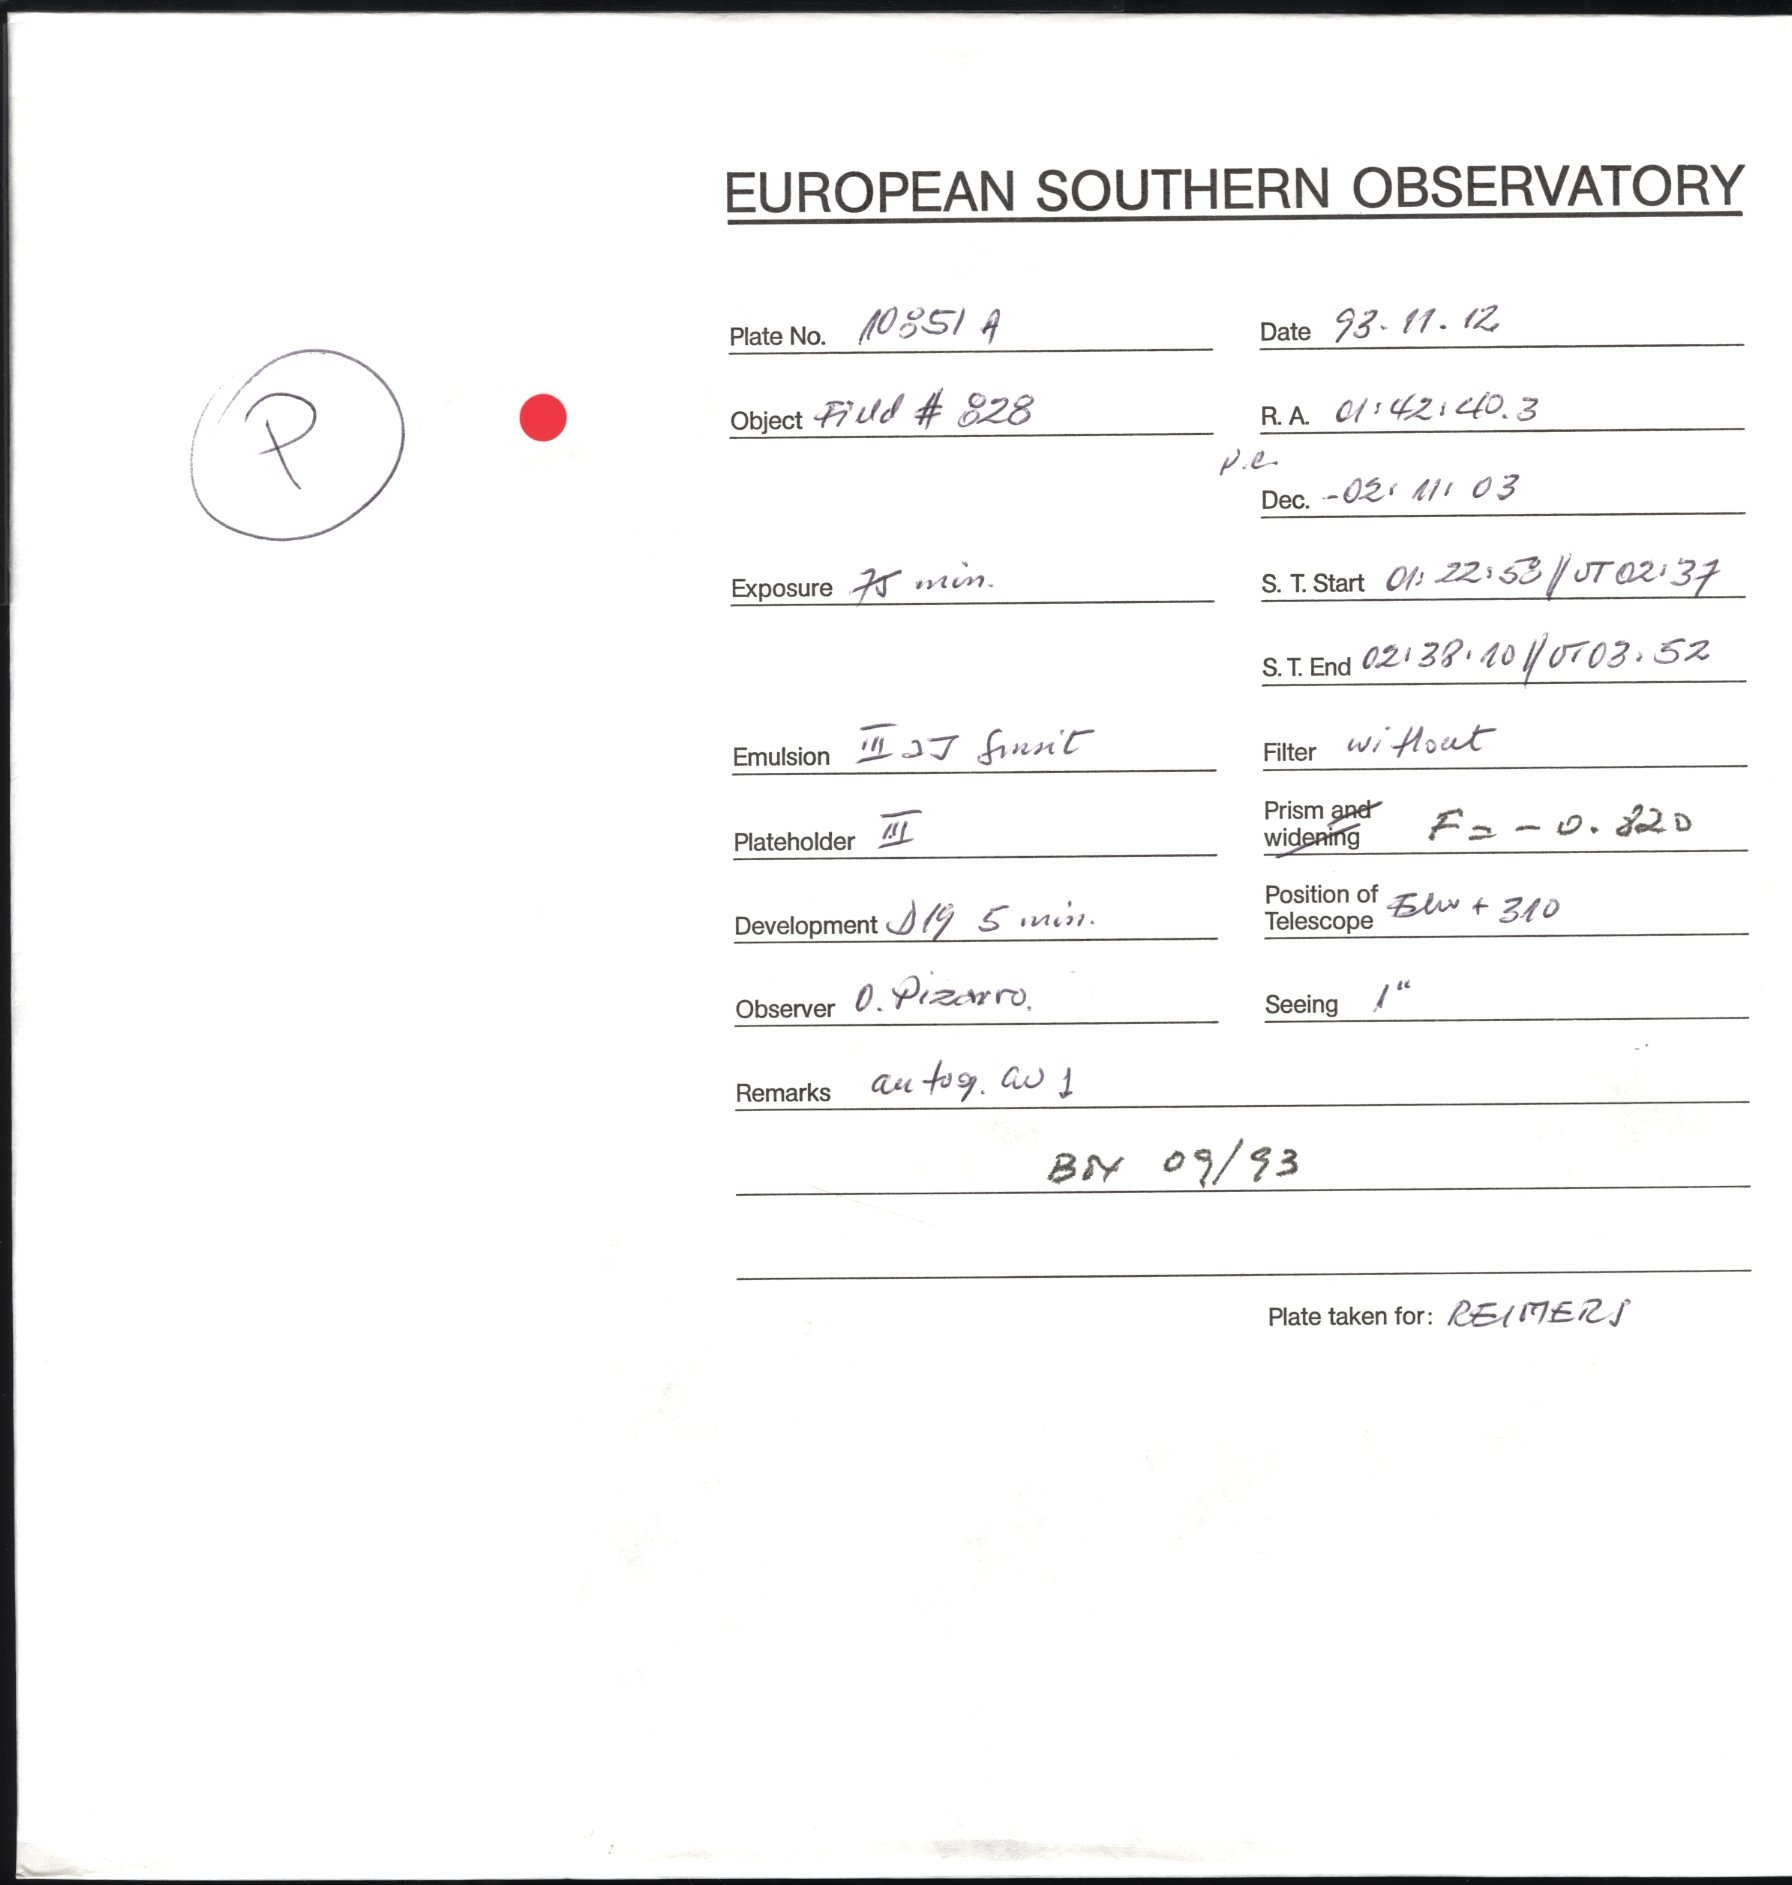 EUROPEAN SOUTHERN OBSERVATORY
Plate No. 10851 A
Date 93. 11. 12
P
Object Field # 828
R. A. 01:42:40.3
p.c.
Dec. -02: 11: 03
Exposure 75 min.
S. T. Start 01: 22:58 // UT 02:37
S. T. End 02:38:10 // UT 03:52
Emulsion III aJ sensit
Filter without
Plateholder III
Prism and widening F = - 0.820
Development D19 5 min.
Position of Telescope + 310
Observer O. Pizarro.
Seeing 1"
Remarks autog. 1
Box 09/93
Plate taken for: REIMERS